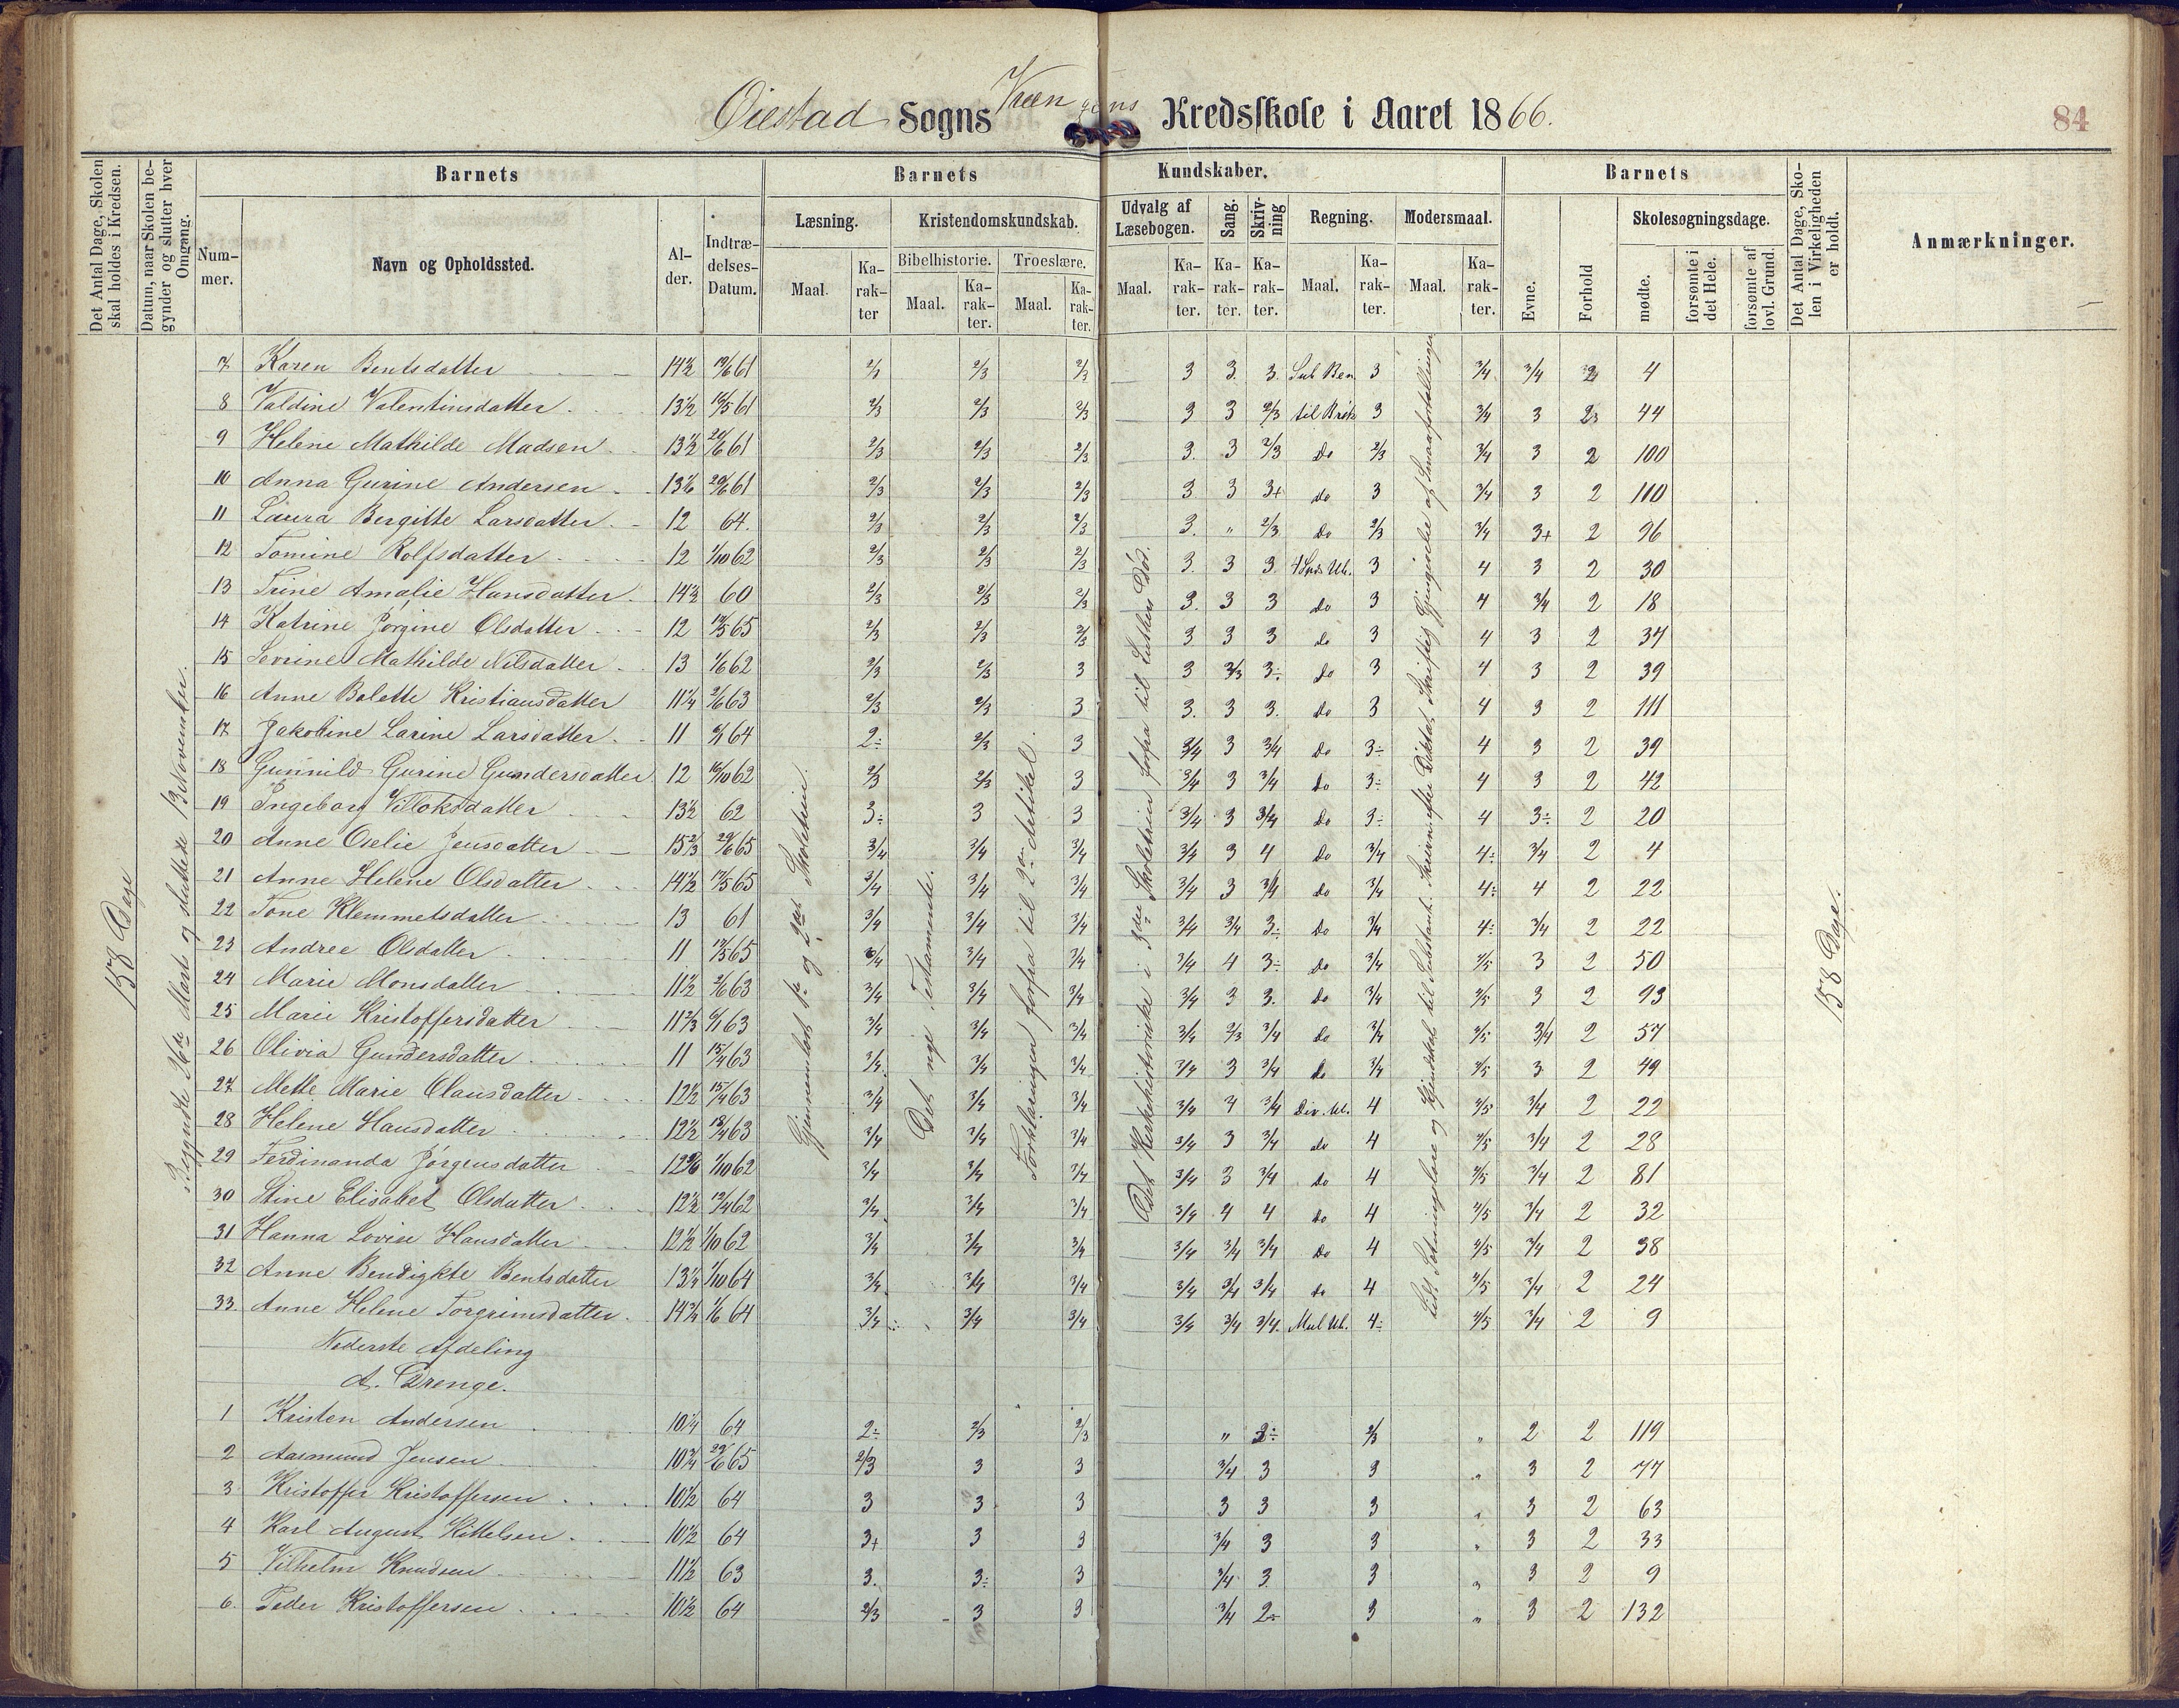 Øiestad Sogns Kredsskole i Aaret 1866.
84
Det Antal Dage, Skolen skal holdes i Kredsen.
Datum, naar Skolen begynder og slutter hver Omgang.
Barnets
Barnets
Kundskaber.
Barnets
Det Antal Dage, Skolen i Virkeligheden er holdt.
Anmærkninger.
Nummer.
Navn og Opholdssted.
Alder.
Indtrædelses-Datum.
Læsning.
Kristendomskundskab.
Udvalg af Læsebogen.
Sang.
Skrivning
Regning.
Modersmaal.
Evne.
Forhold
Skolesøgningsdage.
Bibelhistorie.
Troeslære.
Maal.
Karakter
Maal.
Karakter.
Maal.
Karakter.
Maal.
Karakter.
Karakter.
Karakter.
Maal.
Karakter.
Maal.
Karakter.
mødte.
forsømte i det Hele.
forsømte af lovl. Grund.
158 Dage
Begyndte 26de Marts og sluttede 13 November.
Gjennemlæst 1ste og 2det Skoletrin.
Det nye Testamente.
Forklaringen forfra til 2den Artikel.
Det Kirkehistoriske i 3die Skoletrin forfra til Luthers Død.
158 Dage.
7 Karen Bentsdatter 14½ 61 2/3 2/3 3 3. 3. 3 3/4 3/4 2 4
8 Valdine Valentinsdatter 13½ 61 2/3 2/3 2/3 3 3 2/3 til Brøk 3 3/4 3 2 44
9 Helene Mathilde Madsen 13½ 61 2/3 2/3 2/3 3. 3 2/3 do 2/3 3/4 3 2 100
10 Anna Gurine Andersen 61 2/3 2/3 2/3 3 3 3+ do 3 3/4 3 2 110
11 Laura Bergitte Larsdatter 12 64. 2/3 2/3 2/3 3. " 2/3 do 2/3 3/4 3+ 2 96
12 Tomine Rolfsdatter 12 1/10 62 2/3 2/3 2/3 3. 3 3 3 4 3 2 30
13 Trine Amalie Hansdatter 14½ 60 2/3 2/3 2/3 3. 3 3 do 3 4 3/4 2 18
14 Katrine Jørgine Olsdatter 12 65 2/3 2/3 2/3 3 3 3 do 3 4 3 2 34
15 Severine Mathilde Nilsdatter 13 1/6 62 2/3 2/3 3 3 2/3 3÷ do 3 4 3 2 39
16 Anne Bolette Kristiansdatter 11¼ 63 2/3 2/3 3 3. 3 3. do 3 4 3 2 111
17 Jakobine Larine Larsdatter 11 64 2÷ 2/3 3 3/4 3 3/4 do 3÷ 4 3 2 39
18 Gunnild Gurine Gundersdatter 12 16/10 62 2/3 2/3 3 3/4 3 3/4 do 3÷ 4 3 2 42
19 Ingeborg 13½ 62 3÷ 3 3 3/4 3 3/4 do 3÷ 4 3÷ 2 20
20 Anne Oselie Jensdatter 15⅔ 29/6 65 3/4 3/4 3/4 3/4 3 4 do 3/4 4÷ 3/4 2 4
21 Anne Helene Olsdatter 14½ 65 3/4 3/4 3/4 3/4 3 3/4 do 3/4 4÷ 4 2 22
22 Tone Klemmetsdatter 13 61 3/4 3/4 3/4 3/4 3/4 3÷ do 3/4 4÷ 3/4 2 22
23 Andree Olsdatter 11 65 3/4 3/4 3/4 3/4 4 3÷ do 3/4 4/5 3 2 50
24 Marie Monsdatter 11½ 63 3/4 3/4 3/4 3/4 3 3. do 3/4 4/5 3 2 93
25 Marie Kristoffersdatter 11⅔ 63 3/4 3/4 3/4 3/4 2/3 3/4 do 3/4 4/5 3/4 2 57
26 Olivia Gundersdatter 11 15/4 63 3/4 3/4 3/4 3/4 3 3/4 do 3/4 4/5 3 2 49
27 Mette Marie Olausdatter 12½ 15/4 63 3/4 3/4 3/4 3/4 4 3/4 4 4/5 3/4 2 22
28 Helene Hansdatter 12½ 18/4 63 3/4 3/4 3/4 3/4 3 3/4 do 4 4/5 3/4 2 28
29 Ferdinanda Jørgensdatter 1/10 62 3/4 3/4 3/4 3/4 3 3/4 do 4 4/5 3/4 2 81
30 Stine Elisabet Olsdatter 12½ 62 3/4 3/4 3/4 3/4 4 4 do 4 4/5 3/4 2 32
31 Hanna Lovise Hansdatter 12½ 1/10 62 3/4 3/4 3/4 3/4 3/4 3/4 do 4 4/5 3/4 2 38
32 Anne Bendigkte Bentsdatter 13¼ 1/10 64 3/4 3/4 3/4 3/4 3/4 3/4 do 4 4/5 3/4 2 24
33 Anne Helene Torgrimsdatter 14¾ 1/6 64 3/4 3/4 3/4 3/4 3/4 3/4 4÷ 4/5 3/4 2 9
Nederste Afdeling
A. Drenge.
1 Kristen Andersen 10¼ 64 2÷ 2/3 2/3 " 2/3 " 2 2 119
2 Aasmund Jensen 10¾ 29/6 65 2/3 3 3 3/4 3 3 " 3 2 77
3 Kristoffer Kristoffersen 10½ 64 3 3 3 3 3 3 " 3 2 63
4 Karl August Kittelsen 10½ 64 3+ 3 3 3/4 3 3 " 3 2 33
5 Vilhelm Knudsen 11½ 63 3. 3÷ 3 3/4 3 3 " 3 2 9
6. Peder Kristoffersen 10½ 64 2/3 3 3 3/4 2÷ 3 " 3 2 132